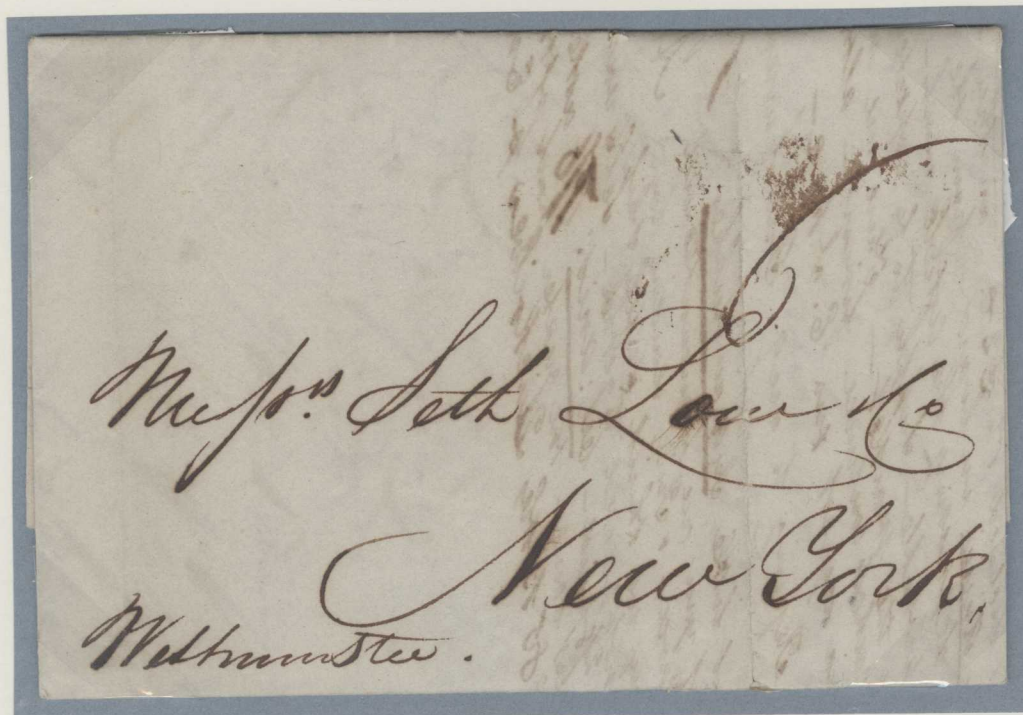 Messrs Seth Low & Co
New York,
Westminster.